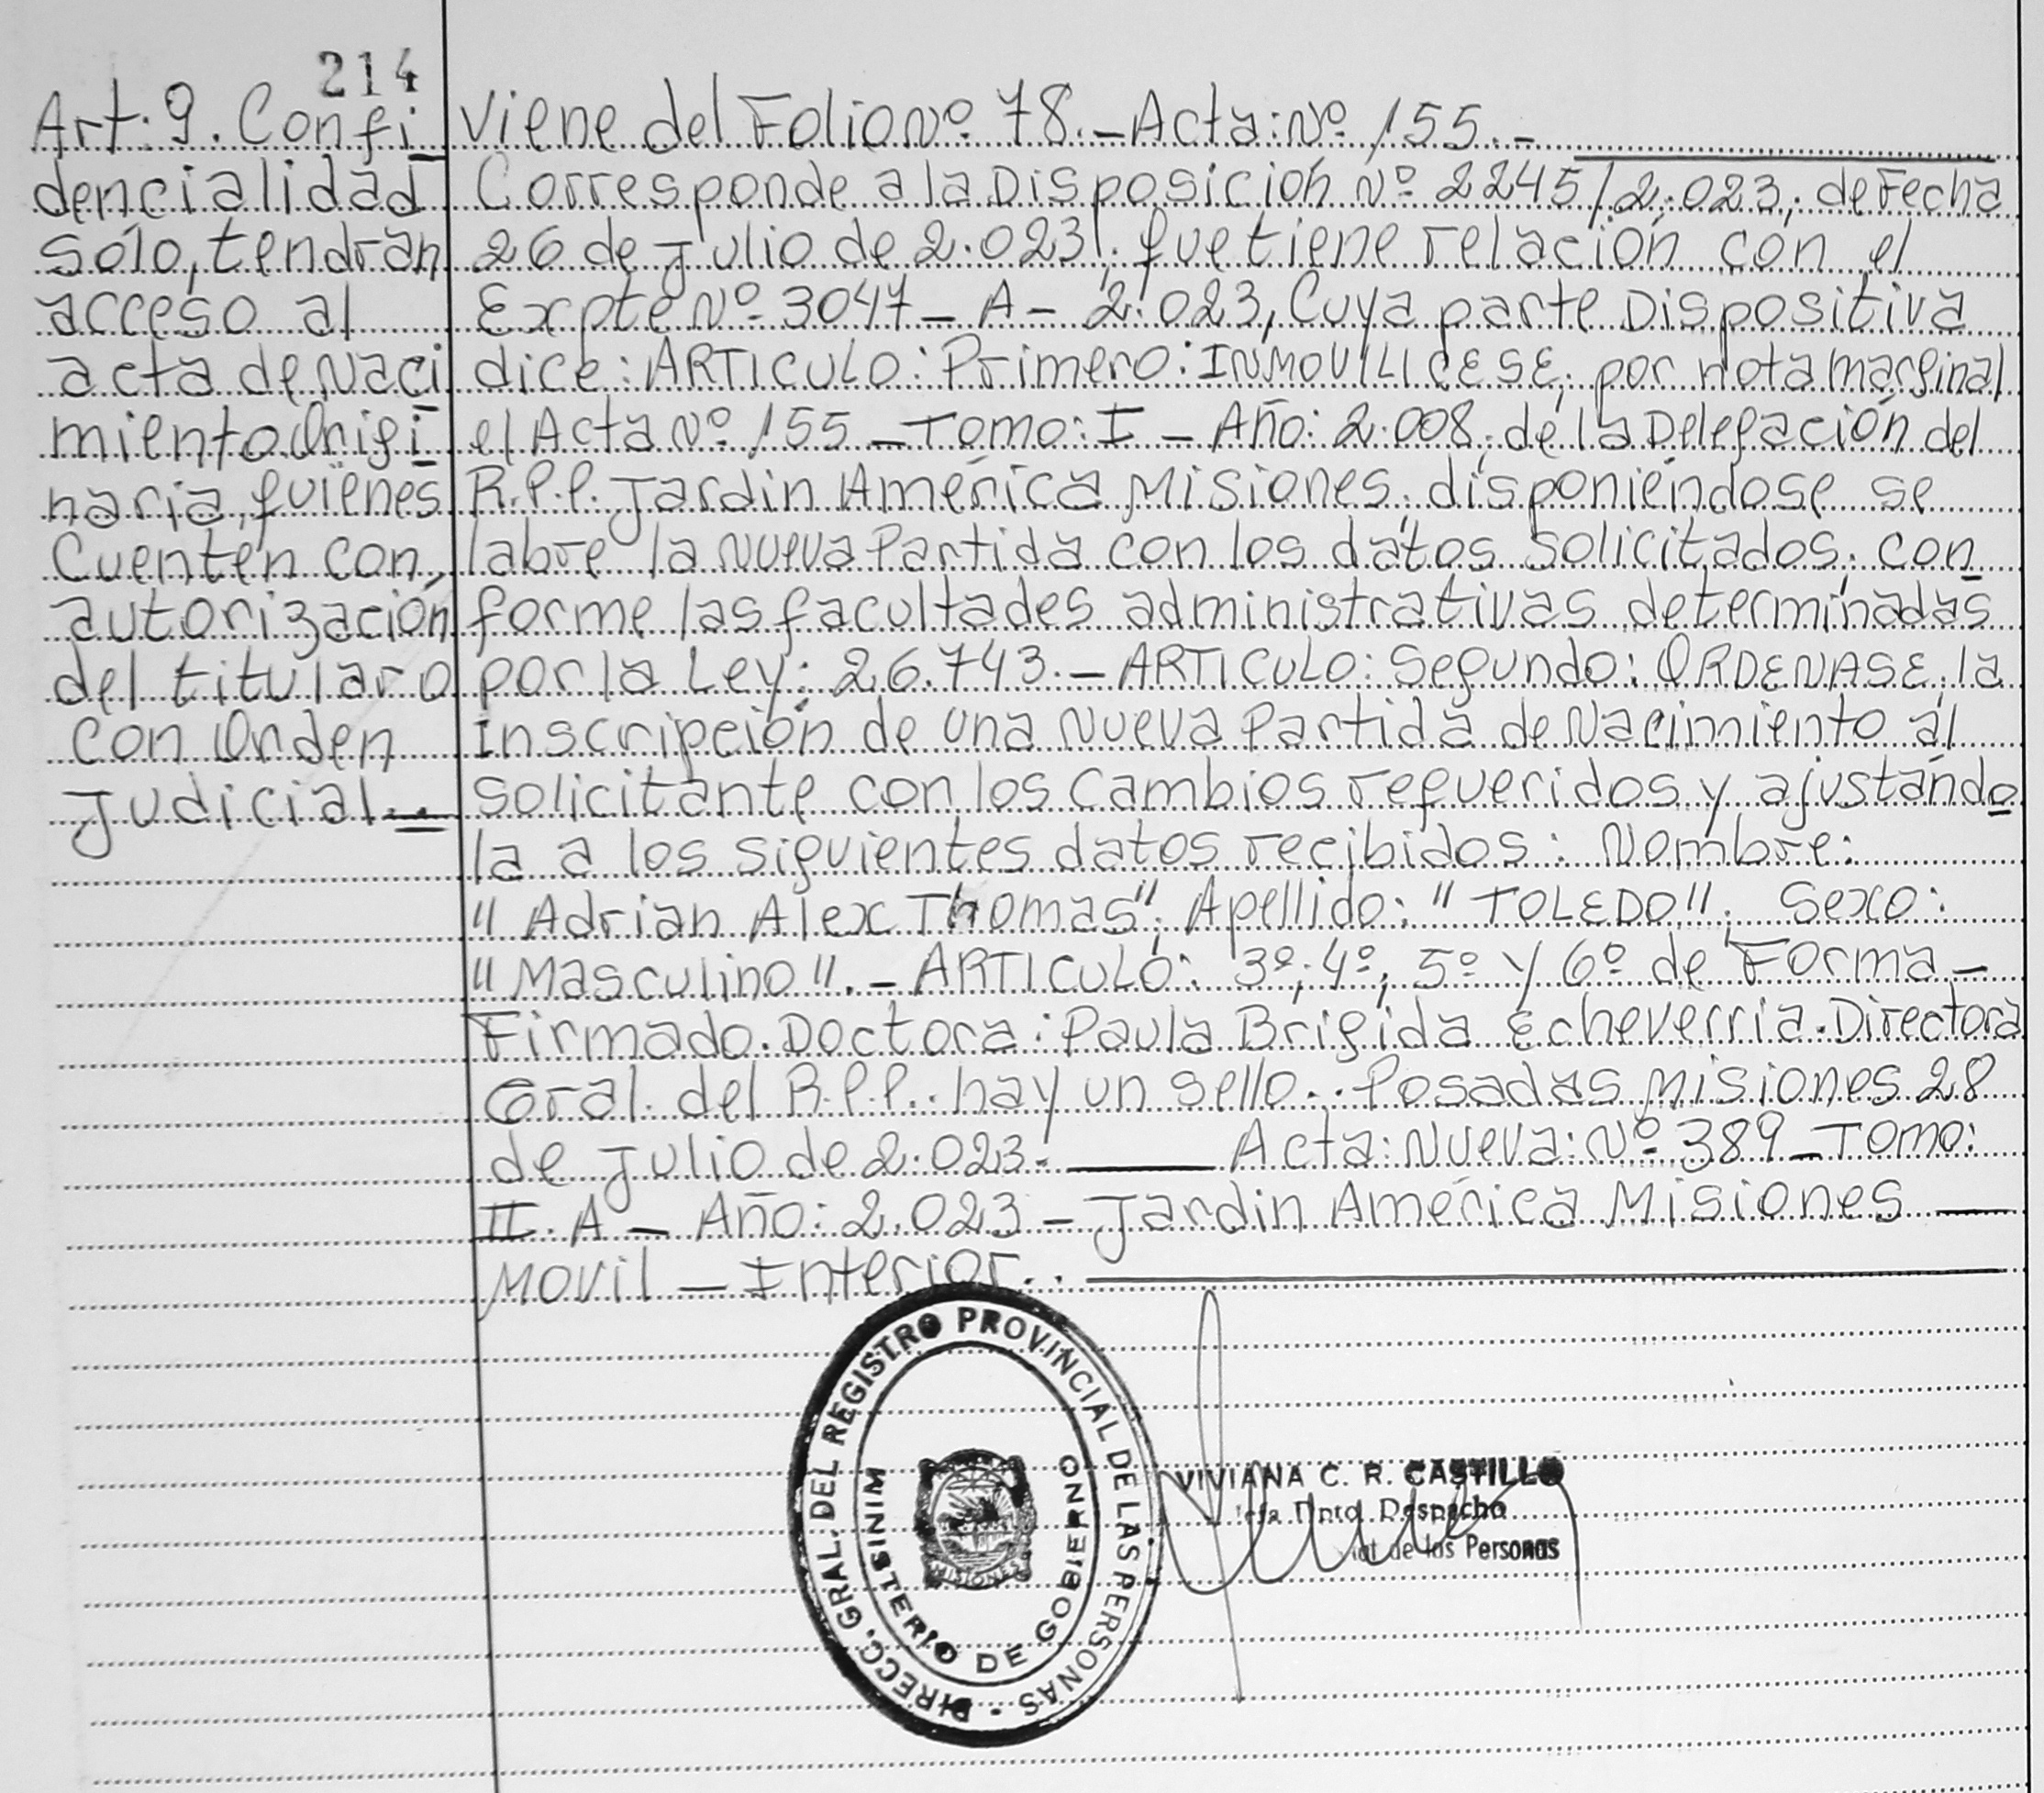 214
Art: 9. Confi
dencialidad
sólo, tendrán
acceso al
acta de Naci
miento Origi
naria, quiénes
Cuenten con,
autorización
del titular o
con Orden
Judicial.=
Viene del Folio Nº 78.- Acta: Nº 155.-
Corresponde a la Disposición Nº 2245/2.023, de Fecha
26 de Julio de 2.023, que tiene relación con el
Expte Nº 3047 - A - 2.023, Cuya parte Dispositiva
dice: ARTICULO: Primero: INMOVILICESE, por nota marginal
el Acta Nº 155 - Tomo: I - Año: 2.008, de la Delegación del
R.P.P. Jardín América Misiones, disponiéndose se
labre la Nueva Partida con los datos solicitados, con
forme las facultades administrativas determinadas
por la Ley: 26.743.- ARTICULO: Segundo: ORDENASE, la
Inscripción de una Nueva Partida de Nacimiento al
solicitante con los Cambios requeridos y ajustándo
la a los siguientes datos recibidos: Nombre:
"Adrian Alex Thomas", Apellido: "TOLEDO". Sexo:
"Masculino".- ARTICULO: 3º, 4º, 5º y 6º de Forma-
Firmado. Doctora: Paula Brigida Echeverria. Directora
Gral. del R.P.P.. hay un sello.. Posadas Misiones 28
de Julio de 2.023.- Acta: Nueva: Nº 389 - Tomo:
II. A - Año: 2.023 - Jardín América Misiones -
Movil - Interior..
DIRECC. GRAL. DEL REGISTRO PROVINCIAL DE LAS PERSONAS -
MINISTERIO DE GOBIERNO
MISIONES
VIVIANA C. R. CASTILLO
Dpto. Despacho
de las Personas